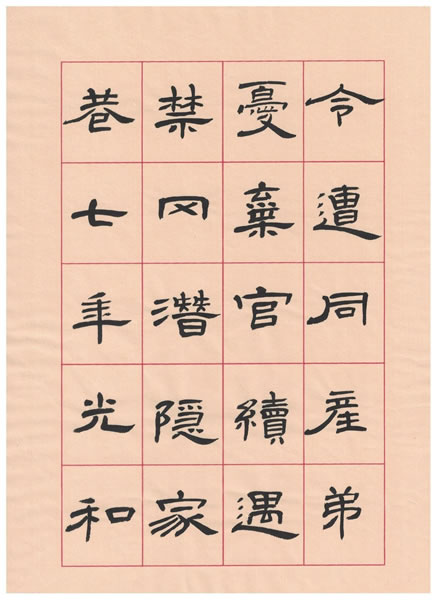 令遭同産弟
憂棄官續遇
禁冈潜隐家
巷七年光和